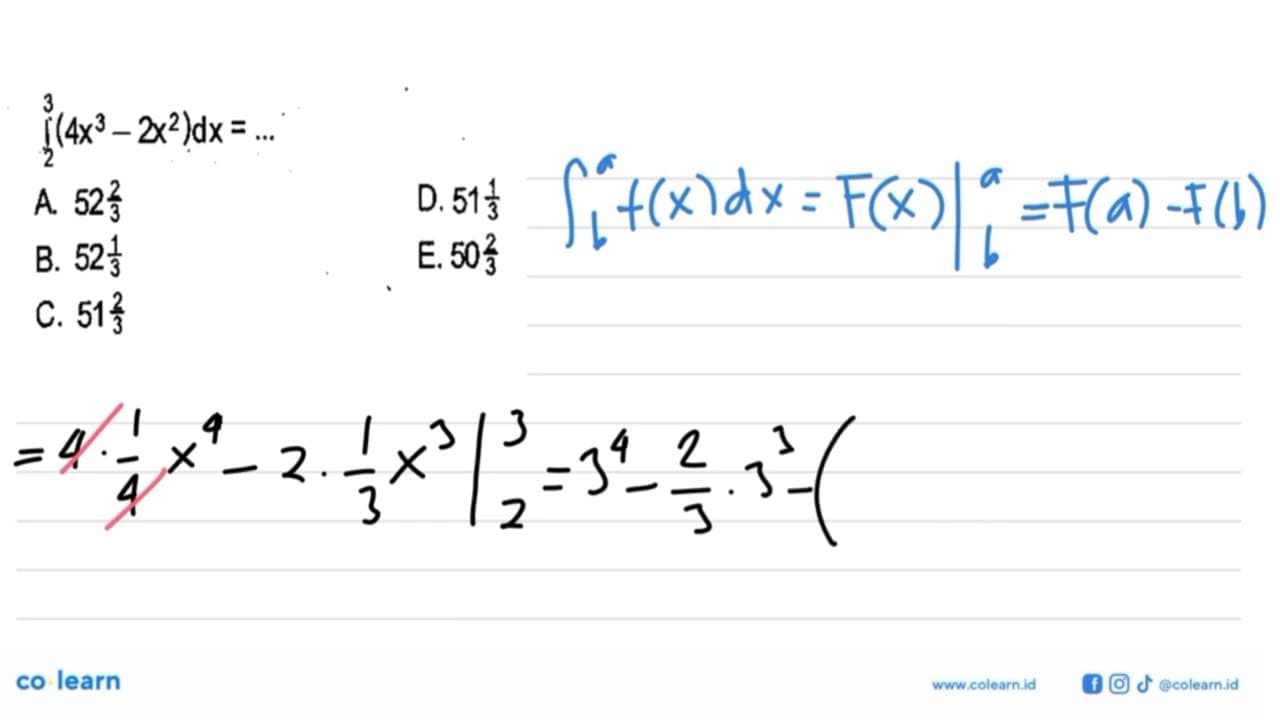 ∫₂³(4x³ – 2x²)dx = ...
A. 52 2/3
B. 52 1/3
C. 51 2/3
D. 51 1/3
E. 50 2/3
∫_b^a f(x)dx = F(x)|_b^a = F(a) - F(b)
= 4 · 1/4 x⁴ – 2 · 1/3 x³ |₂³ = 3⁴ – 2/3 · 3³ – (
co learn
www.colearn.id
@colearn.id